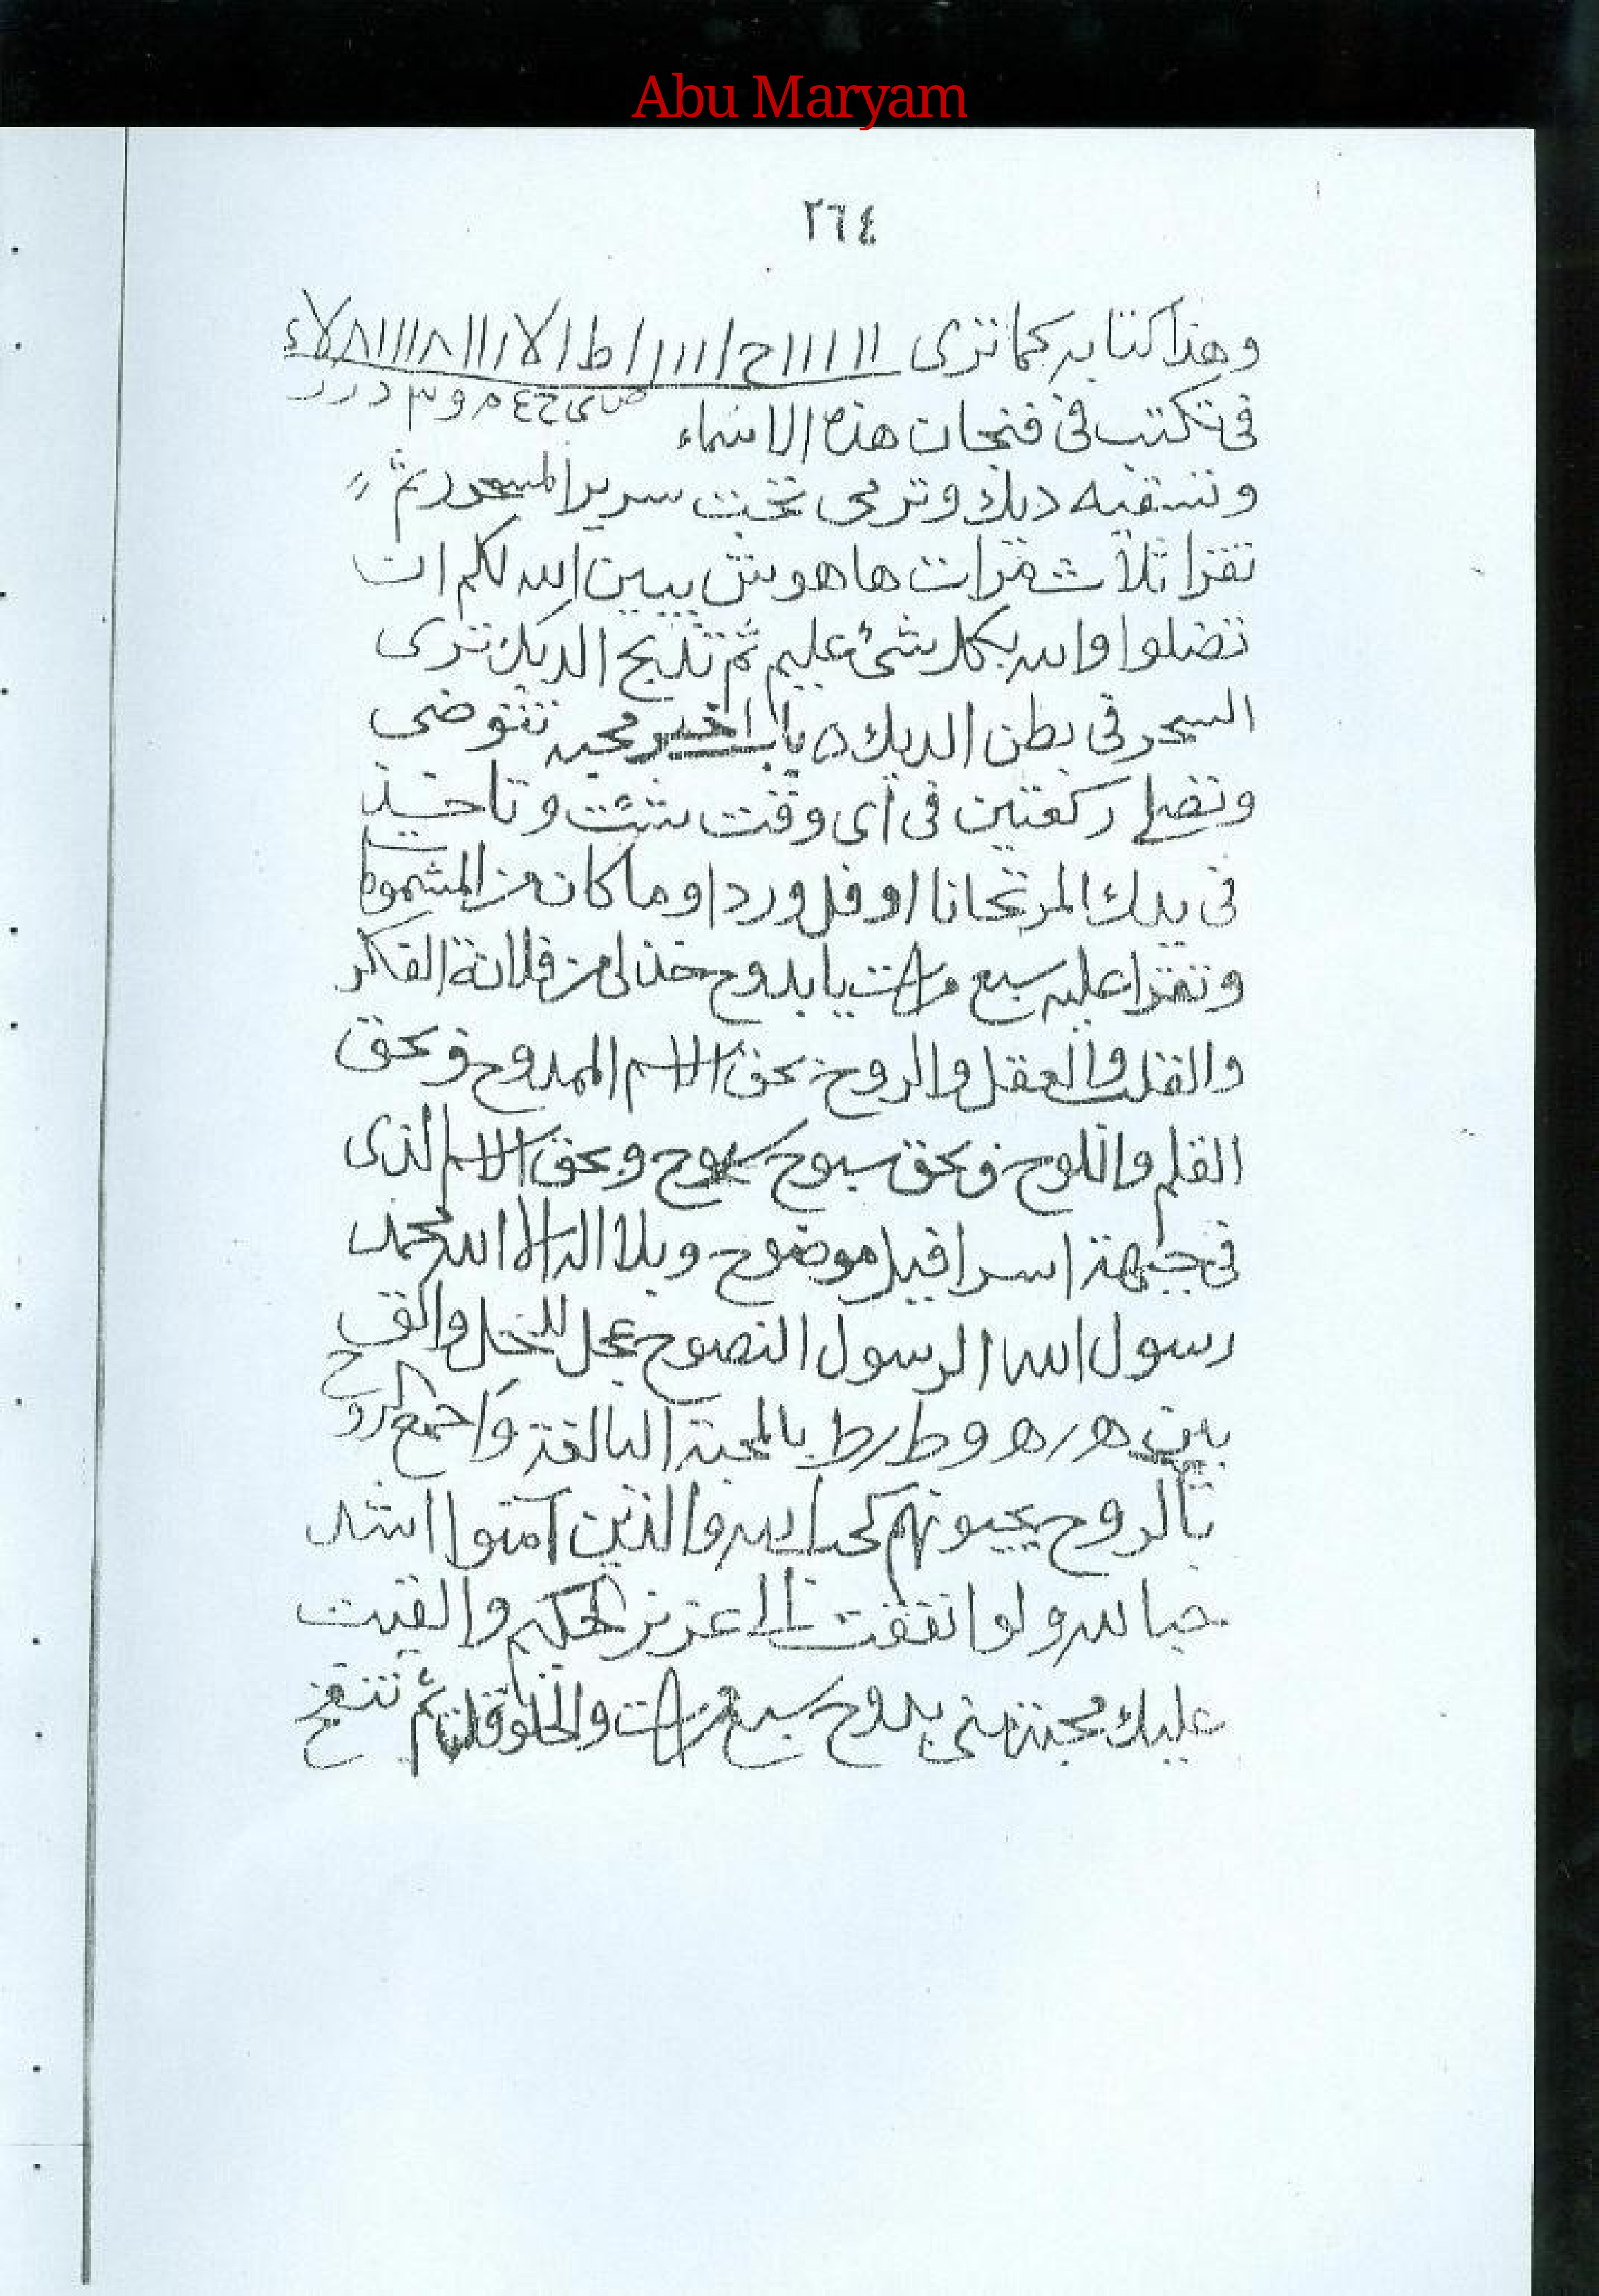 Abu Maryam
٢٦٤
وهذا كتابه كما ترى
فى تكتب فى فنجان هذه الاسماء
وتسقيه ديك وترمى تحت سرير المسحور ثم
تقرا ثلاث مرات ها هوش يبين الله لكم ان
تضلوا والله بكل شئ عليم ثم تذبح الديك ترى
السحر فى بطن الديك ه باب اخر محبه تتوضى
وتصلى ركعتين فى أى وقت شئت وتاخذ
فى يدك اما ريحانا او فل ورد او ما كان من المشموم
وتقرا عليه سبع مرات يا بدوح خذ لى من فلانة الفكر
والقلب والعقل والروح بحق الاسم الممدوح وبحق
القلم واللوح وبحق سبوح سبوح وبحق الاسم الذى
فى جبهة اسرافيل موضوح وبلا اله الا الله محمد
رسول الله الرسول النصوح عجل للدخل والق
بين ه ر ه و ط ر ط بالمحبة البالغة واجمع الروح
بالروح يحبونهم كحب الله والذين آمنوا اشد
حبا لله ولو انفقت الى عزيز الحكيم والقيت
عليك محبة منى بدوح سبع مرات ثم تنفخ